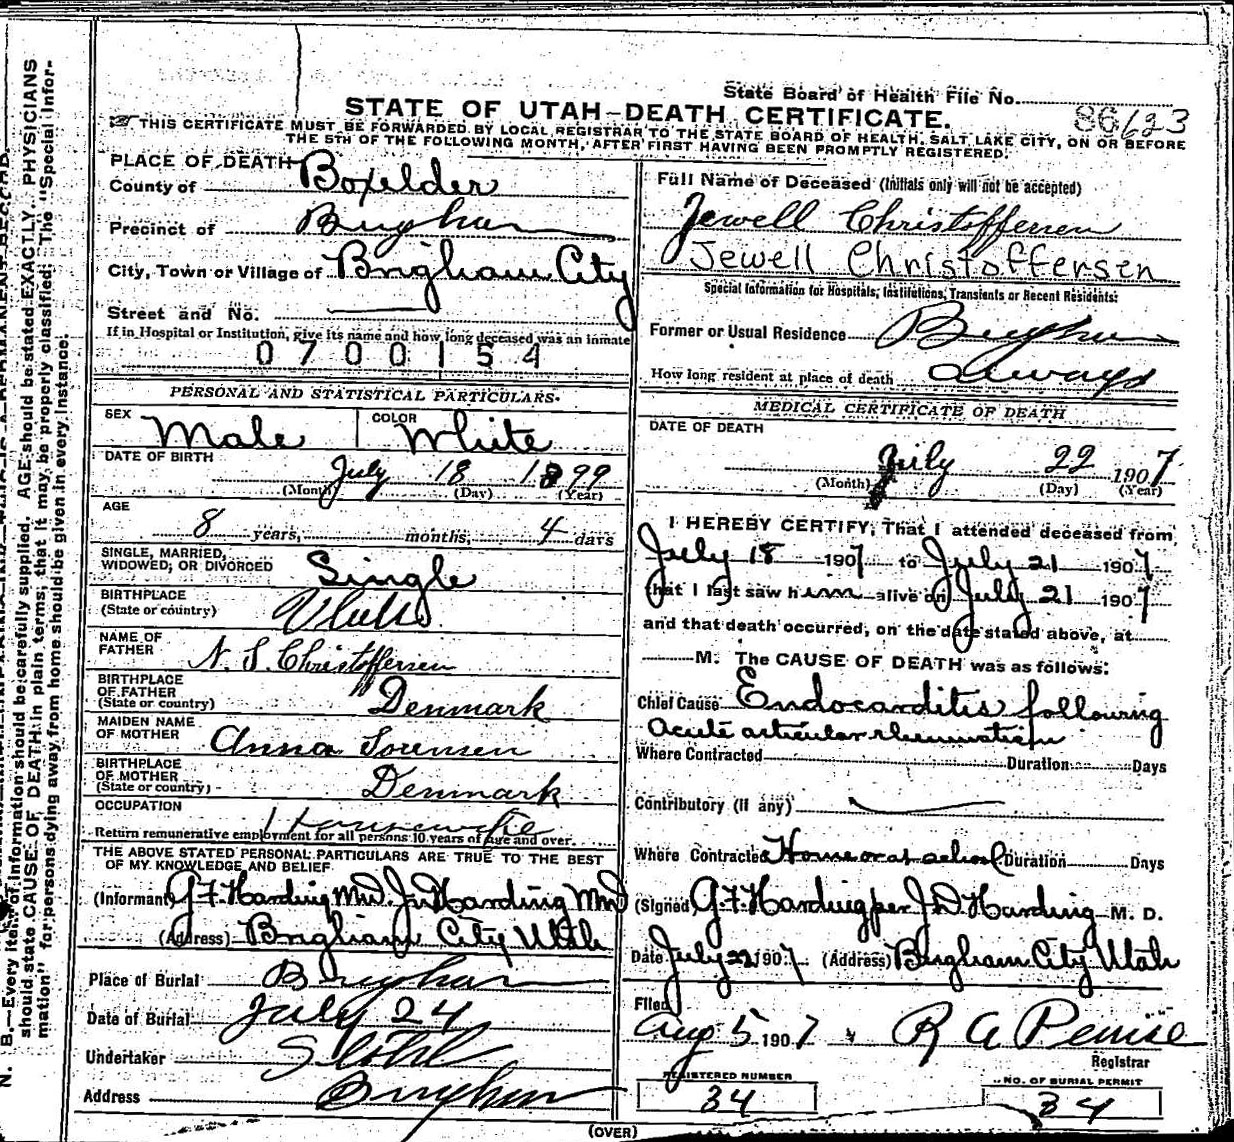 State Board of Health File No. 86 623
STATE OF UTAH—DEATH CERTIFICATE.
THIS CERTIFICATE MUST BE FORWARDED BY LOCAL REGISTRAR TO THE STATE BOARD OF HEALTH, SALT LAKE CITY, ON OR BEFORE
THE 5TH OF THE FOLLOWING MONTH, AFTER FIRST HAVING BEEN PROMPTLY REGISTERED.
PLACE OF DEATH
County of Boxelder
Precinct of Brigham
City, Town or Village of Brigham City
Street and No.
If in Hospital or Institution, give its name and how long deceased was an inmate
0700154
PERSONAL AND STATISTICAL PARTICULARS.
SEX Male COLOR White
DATE OF BIRTH
July 18 1899
(Month) (Day) (Year)
AGE
8 years, months, 4 days
SINGLE, MARRIED,
WIDOWED, OR DIVORCED Single
BIRTHPLACE
(State or country) Utah
NAME OF
FATHER N. S. Christoffersen
BIRTHPLACE
OF FATHER
(State or country) Denmark
MAIDEN NAME
OF MOTHER Anna Sorensen
BIRTHPLACE
OF MOTHER
(State or country) Denmark
OCCUPATION
Return remunerative employment for all persons 10 years of age and over.
THE ABOVE STATED PERSONAL PARTICULARS ARE TRUE TO THE BEST
OF MY KNOWLEDGE AND BELIEF
(Informant) G F Harding Md. J. Harding Md
(Address) Brigham City Utah
Place of Burial Brigham
Date of Burial July 24
Undertaker
Address Brigham
Full Name of Deceased (Initials only will not be accepted)
Jewell Christoffersen
Jewell Christoffersen
Special Information for Hospitals, Institutions, Transients or Recent Residents:
Former or Usual Residence Brigham
How long resident at place of death always
MEDICAL CERTIFICATE OF DEATH
DATE OF DEATH
July 22 1907
(Month) (Day) (Year)
I HEREBY CERTIFY, That I attended deceased from
July 18 1907 to July 21 1907
that I last saw him alive on July 21 1907
and that death occurred, on the date stated above, at
M. The CAUSE OF DEATH was as follows:
Chief Cause Endocarditis following
acute articular rheumatism
Where Contracted Duration Days
Contributory (if any)
Where Contracted Home or at school Duration Days
(Signed) G. F. Harding per J D Harding M. D.
Date July 22 1907 (Address) Brigham City Utah
Filed
Aug 5 1907 R A
Registrar
REGISTERED NUMBER
34
NO. OF BURIAL PERMIT
34
(OVER)
N. B.—Every item of information should be carefully supplied. AGE should be stated EXACTLY. PHYSICIANS
should state CAUSE OF DEATH in plain terms, that it may be properly classified. The "Special Infor-
mation" for persons dying away from home should be given in every instance.